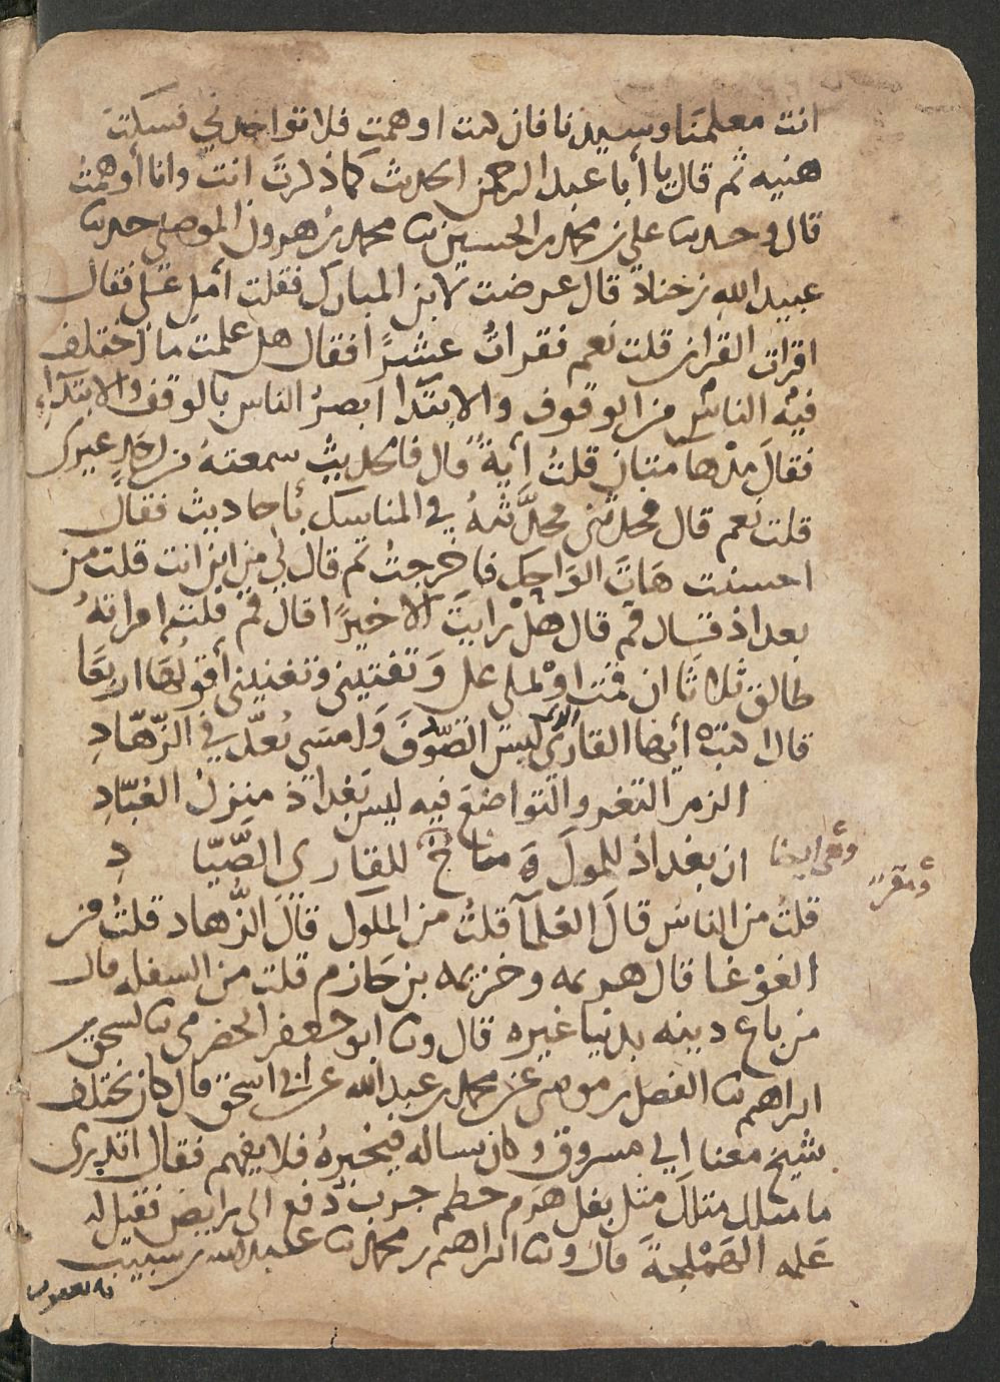 انت معلمنا وسيدنا فان كنت اوهمت فلا تواخذني فسكت
هنيه ثم قال يا أبا عبد الرحمن الحديث كما ذكرتَ انت وانا أوهمت
قال وحدثنا علي بن محمد بن الحسين نا محمد بن هرون الموصلي حدثنا
عبيد الله بن جناد قال عرضت لابن المبارك فقلت أملِ عليَّ فقال
اقرات القران قلت نعم فقرأتُ عشرًا فقال هل علمت ما اختلف
فيه الناس من الوقوف والابتدا ابصرُ الناس بالوقف والابتداءِ
فقالَ مدهامتان قلتُ أيةً قال فالحديث سمعتهُ من احدٍ غيري
قلت نعم قال فحدثني فحدَّثتهُ في المناسك بأحاديث فقال
احسنت هَات الوَاحك فاخرجتُ ثم قال لي من اين انت قلت من
بغداذ فقال قم قال هل رايتَ الا خيرًا قال قم قلت امراتهُ
طالق ثلاثًا ان قمت او تملي علي وَتفتيني وتغنيني أقولها اربعًا
قال انتبه أيها القارئ الذي لبسَ الصّوفَ وَامسى يُعدّ في الزّهّادِ
الزم الثغر والتواضعَ فيه ليس بَغداذ منزلُ العُبّادِ
ان بغداذ للملوك مناخٌ للقارى الصّيّا دِ
وهي ايضا
ومقر
قلتُ من الناسُ قالَ العُلماَ قلتُ من الملوك قالَ الزُّهاد قلتُ من
الغوْغا قال هرثمه وخزيمه بن حَازم قلت من السفله قال
من باع دينه بدنيا غيره قال ونا ابو جعفر الحضرمي نا اسحق بن
ابراهيم نا الفضل بن موسى عن محمد بن عبيد الله عن ابي اسحق قال كان يختلف
شيخ معنا الى مسروق وكان يساله فيُخبرهُ فلا يفهم فقال اتدري
ما مثلك مثلك مثل بغل هرم حطم جرب دُفع الى رايض فقيل له
عَلمه الهَمْلجةَ قال ونا ابراهيم بن محمد نا عبد الله بن شبيب